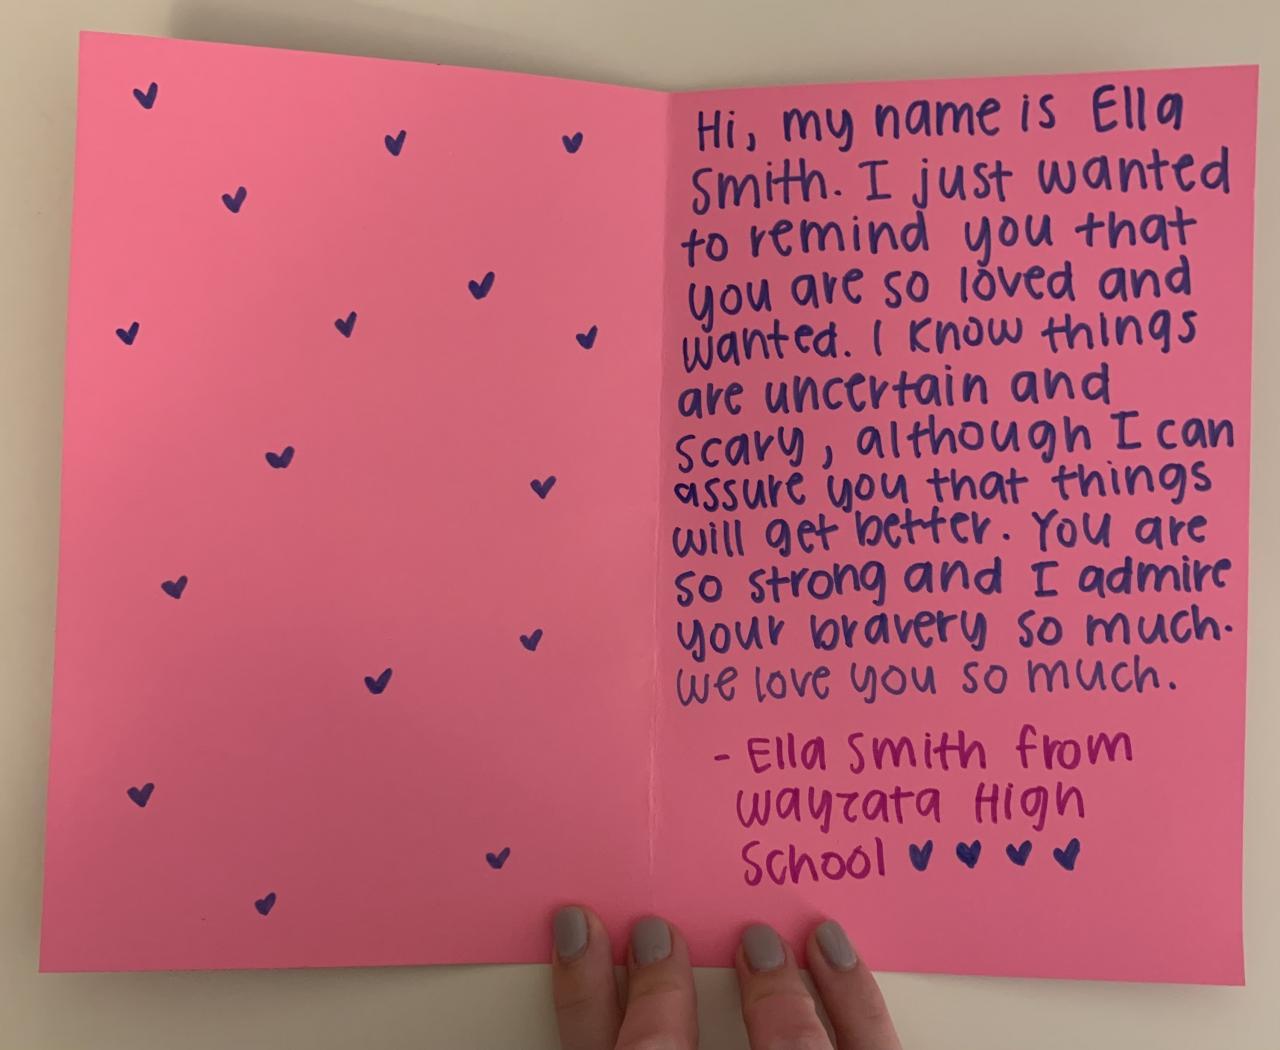 Hi, my name is Ella
Smith. I just wanted
to remind you that
you are so loved and
wanted. I know things
are uncertain and
scary, although I can
assure you that things
will get better. You are
so strong and I admire
your bravery so much.
we love you so much.
- Ella Smith from
Wayzata High
School ♥ ♥ ♥ ♥